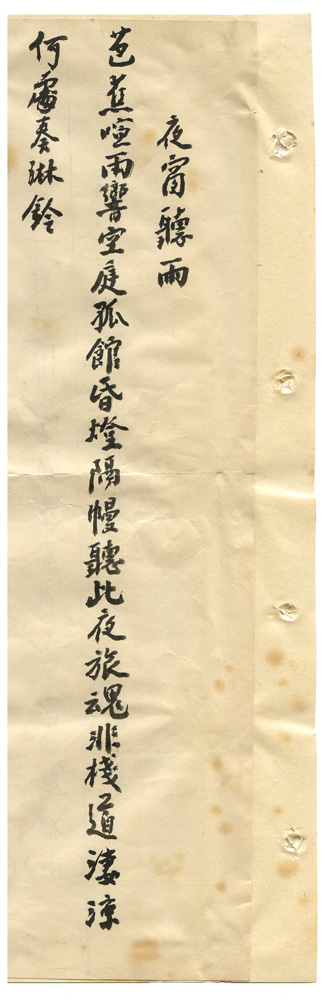 夜窗聽雨
芭蕉喧雨響空庭孤館昏燈隔幔聽此夜旅魂非棧道淒涼
何處奏淋鈴